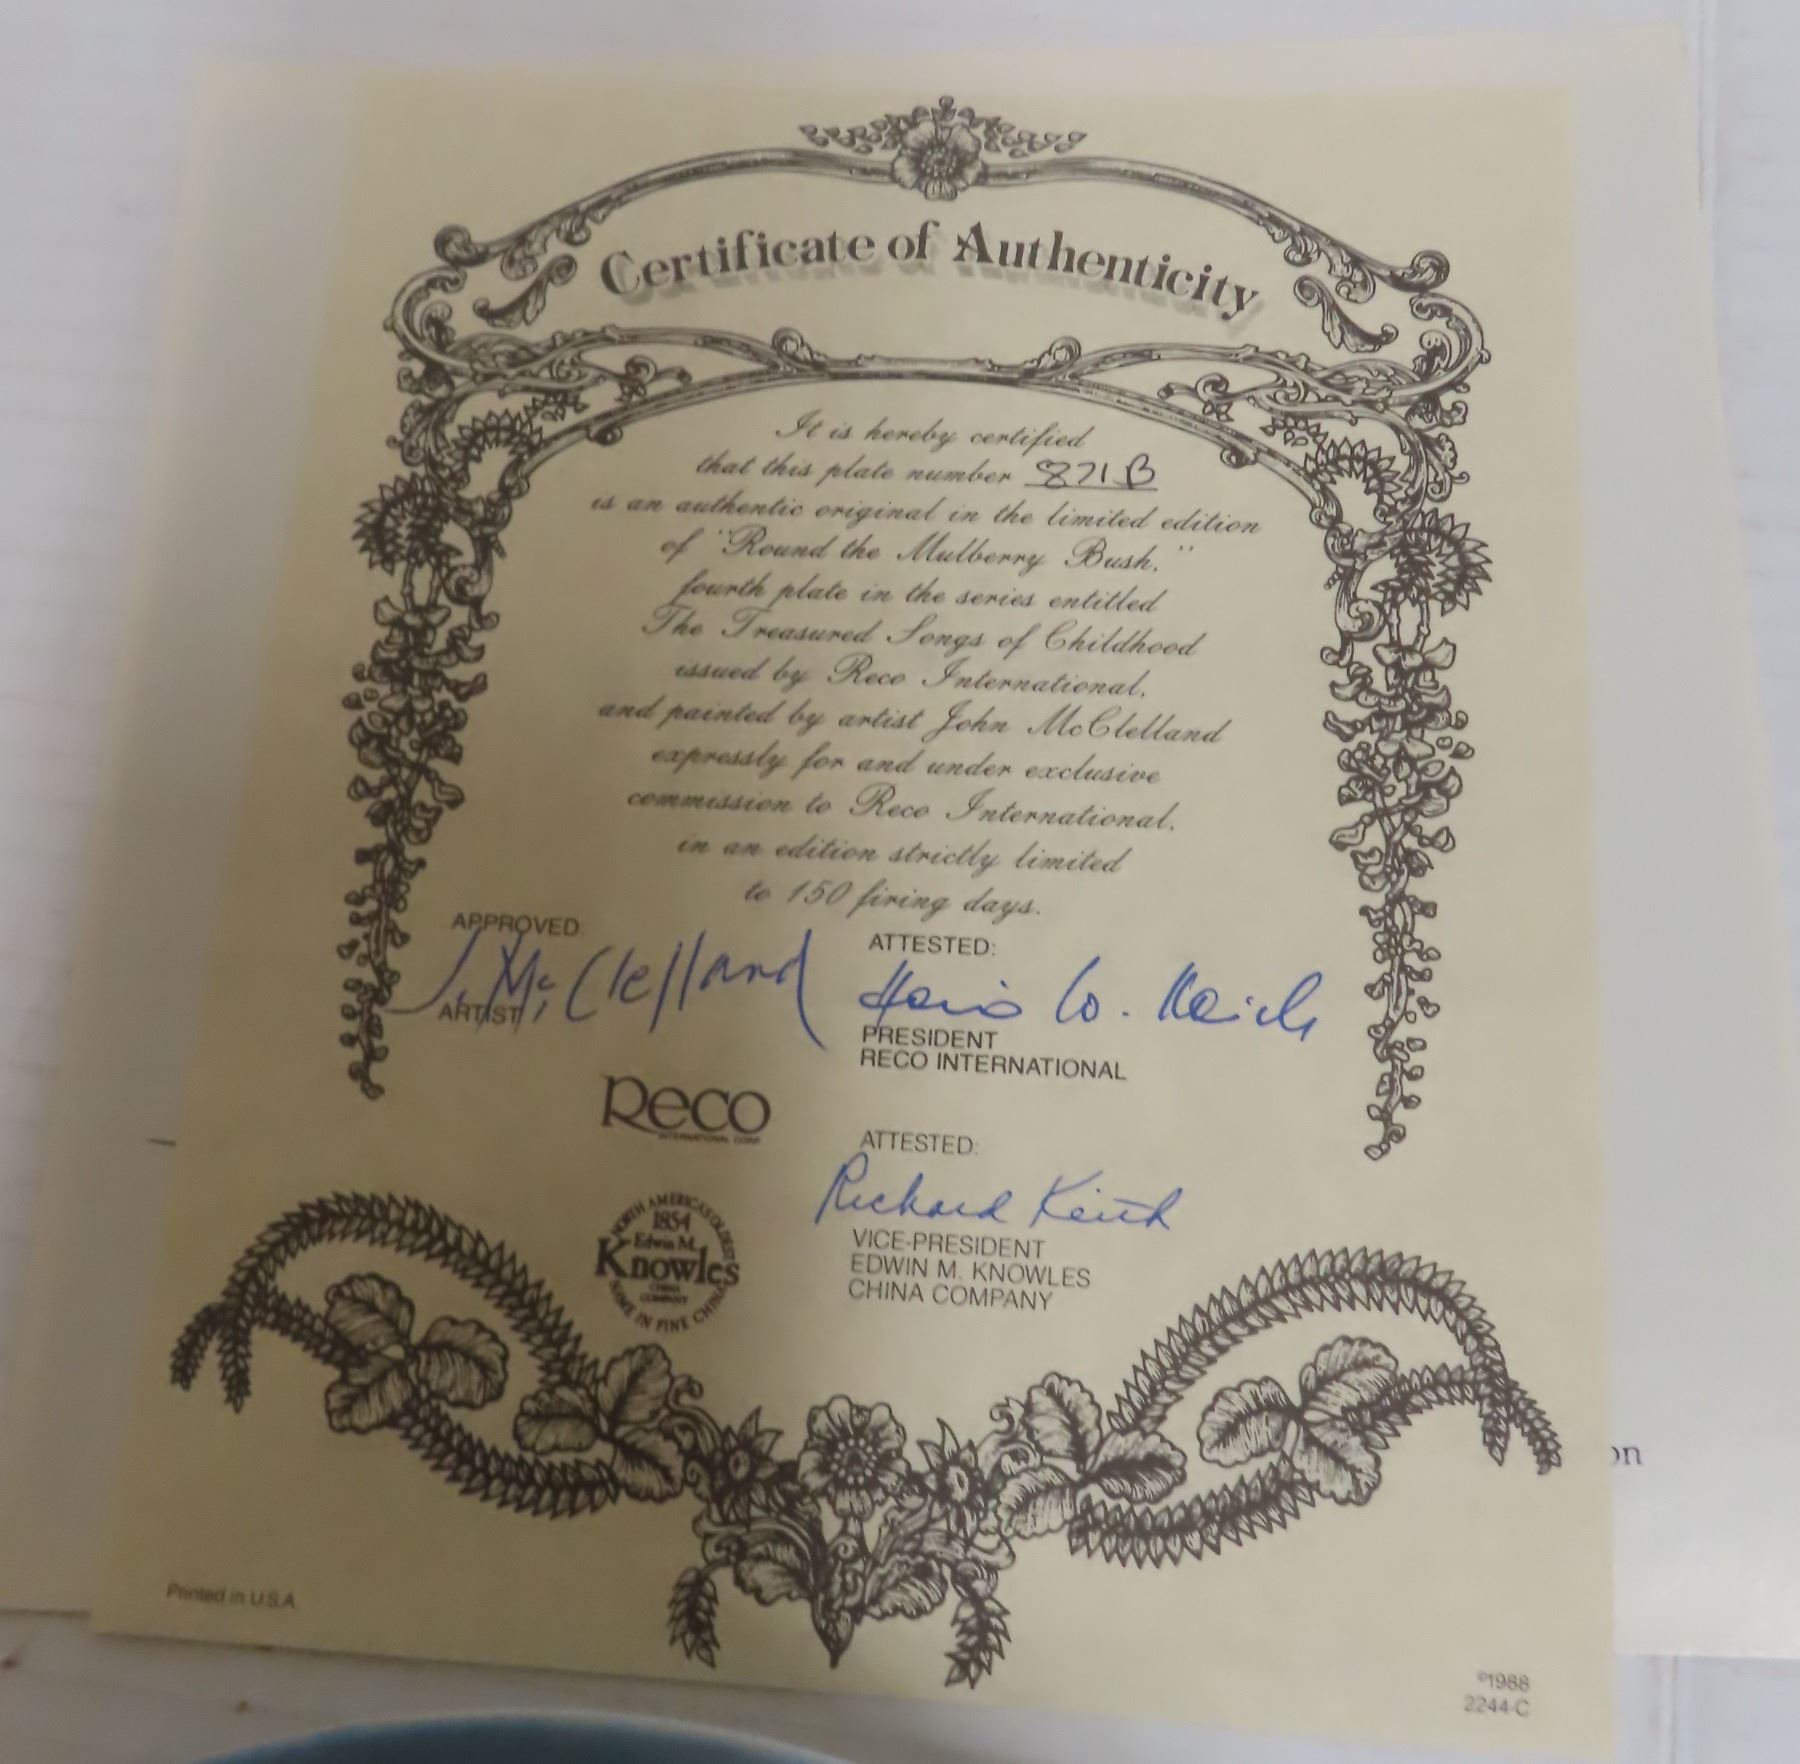 Certificate of Authenticity
It is hereby certified
that this plate number 871B
is an authentic original in the limited edition
of "Round the Mulberry Bush,"
fourth plate in the series entitled
The Treasured Songs of Childhood
issued by Reco International,
and painted by artist John McClelland
expressly for and under exclusive
commission to Reco International,
in an edition strictly limited
to 150 firing days.
APPROVED:
J. McClelland
ARTIST
ATTESTED:
W. Reich
PRESIDENT
RECO INTERNATIONAL
Reco
INTERNATIONAL CORP.
ATTESTED:
Richard Keith
VICE-PRESIDENT
EDWIN M. KNOWLES
CHINA COMPANY
NORTH AMERICA'S OLDEST
1854
Edwin M.
Knowles
CHINA
COMPANY
NAME IN FINE CHINA
on
Printed in U.S.A.
©1988
2244-C